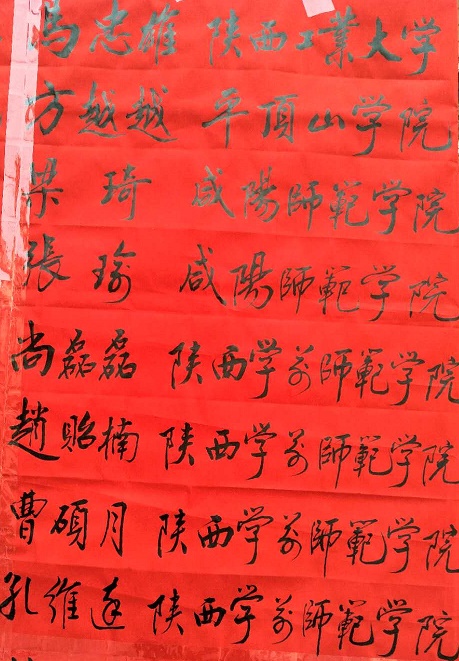 馮忠雄 陕西工業大学
方越越 平頂山学院
柴琦 咸陽師範学院
張瑜 咸陽師範学院
尚磊磊 陕西学前師範学院
趙貽楠 陕西学前師範学院
曹碩月 陕西学前師範学院
孔維达 陕西学前師範学院